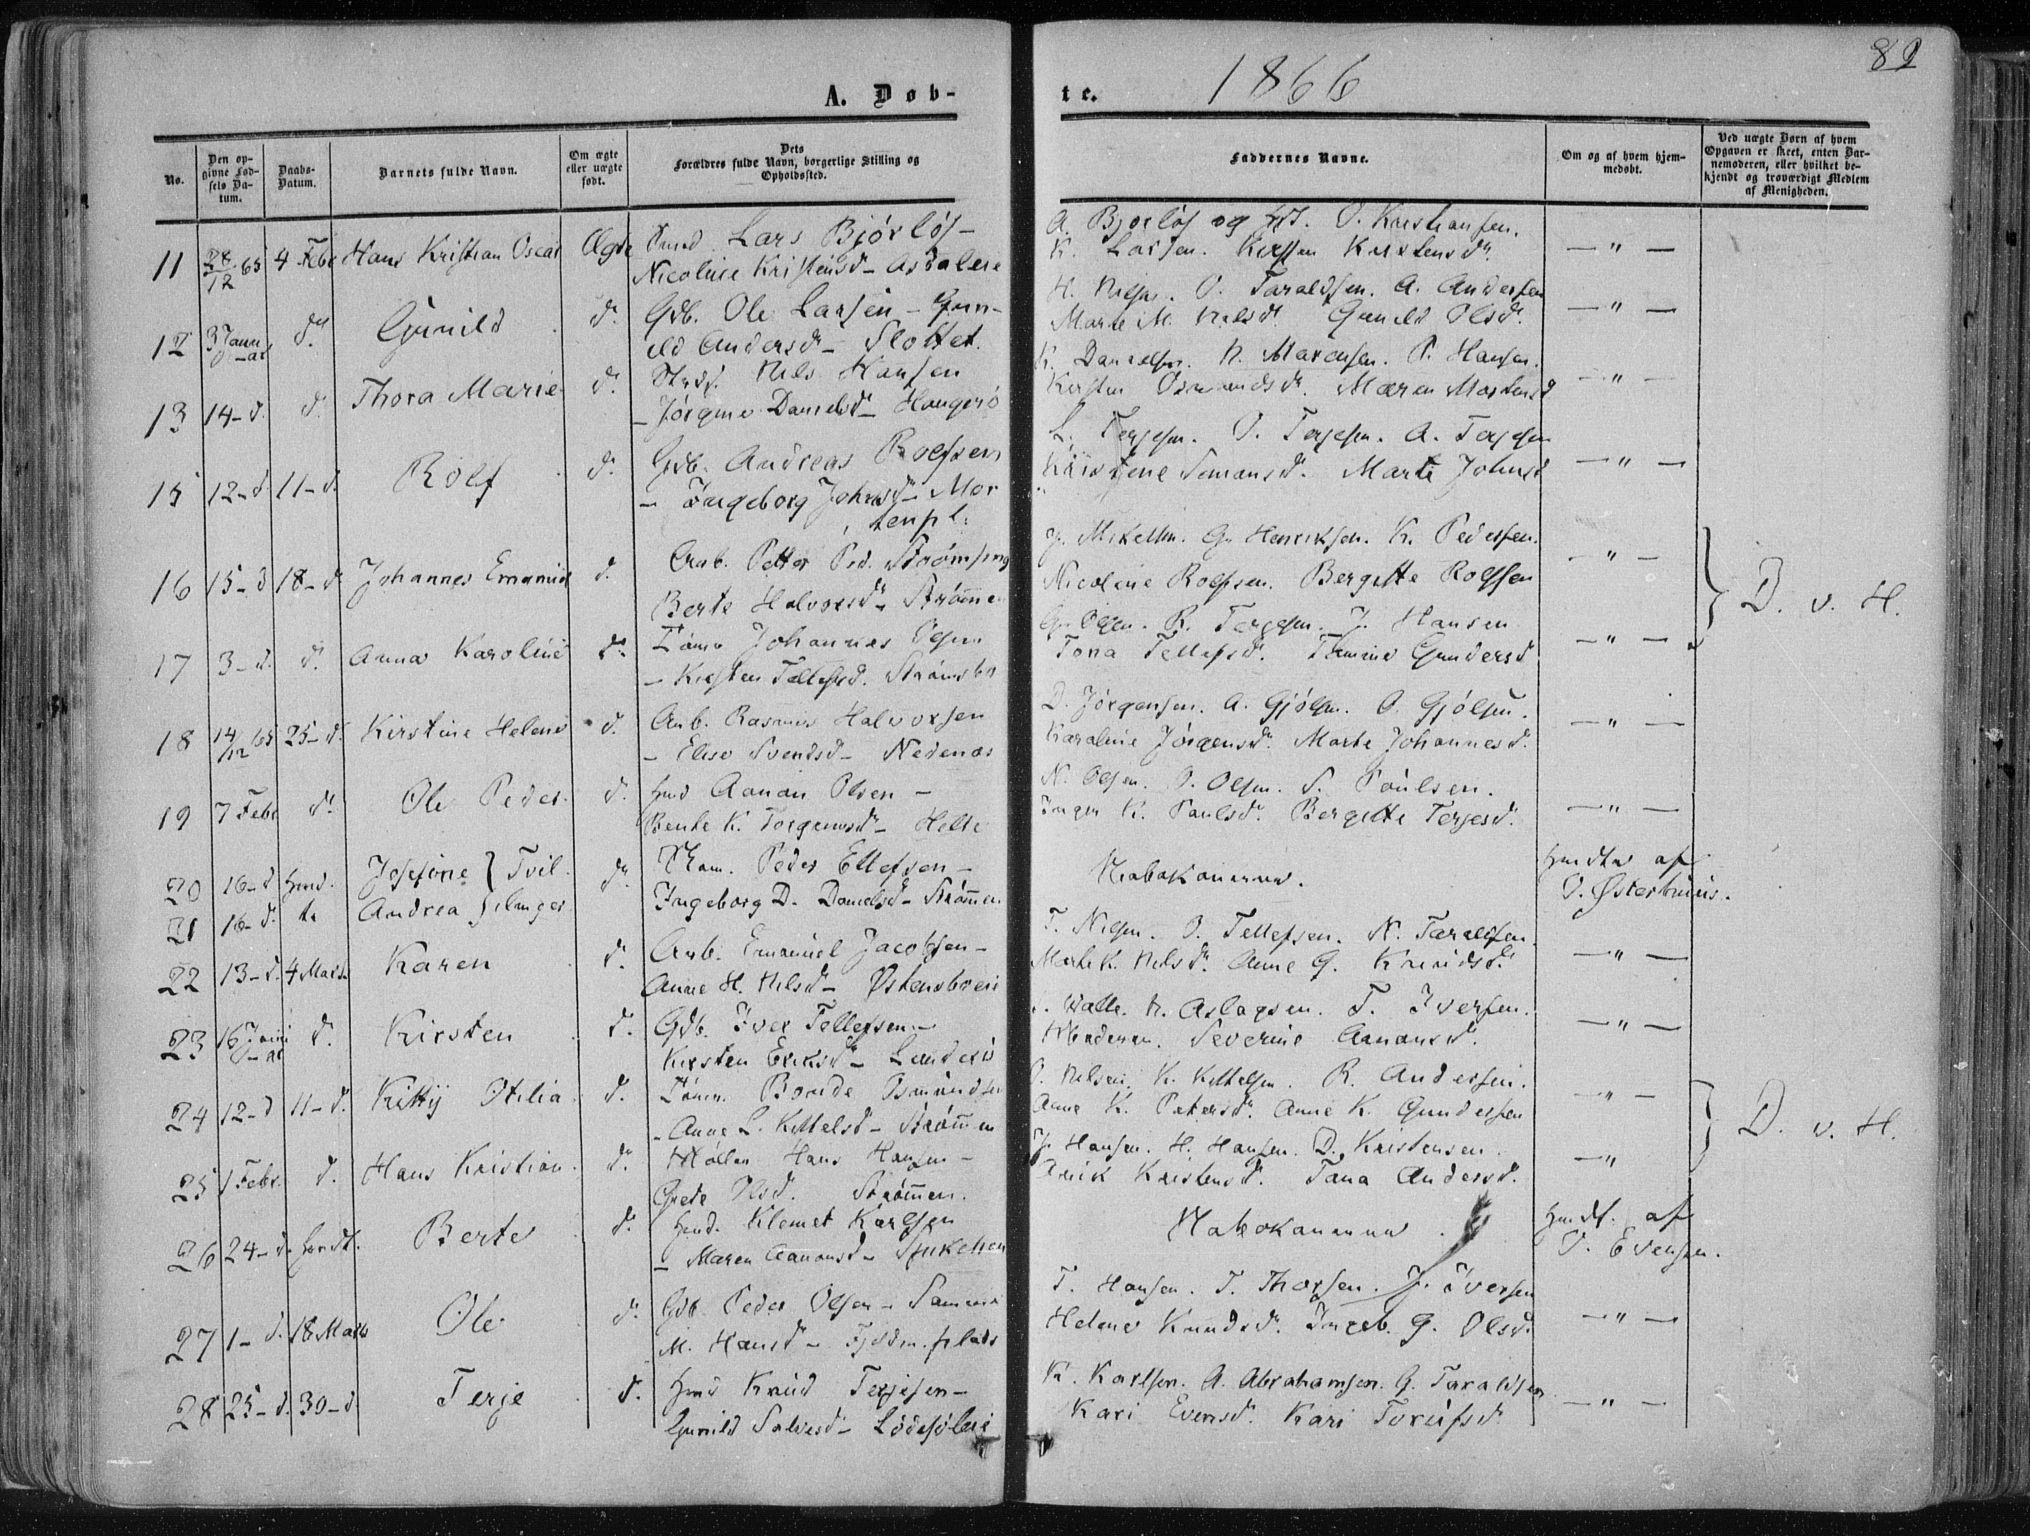 A. Døb-
te.
1866
82
No.
Den op-
givne Fød-
sels Da-
tum.
Daabs-
Datum.
Barnets fulde Navn.
Om ægte
eller uægte
født.
Dets
Forældres fulde Navn, borgerlige Stilling og
Opholdssted.
Faddernes Navne.
Om og af hvem hjem-
medøbt.
Ved uægte Børn af hvem
Opgaven er skeet, enten Bar-
nemoderen, eller hvilket be-
kjendt og troværdigt Medlem
af Menigheden.
11 28/12 65 4 Febr Hans Kristian Oscar Ægte Lars Bjørløs-
Nicoline Kristensd-
A. Bjørløs og O. Kristiansen.
K. Larsen. Kirsten Kristensdr. —"—
12 3 Janu-ar do. Gunild do. Gdb. Ole Larsen - Gun-
ild Andersdr - Slottet.
H. Nilsen. O. Taraldsen. A. Andersen
Marte M. Nilsdr. Gunild Olsdr. —"—
13 14-d. do. Thora Marie do. Nils Hansen
- Jørgine Danielsd - Haugerö
K. Danielsen. N. Marcusen. P. Hansen.
Kirsten Osmundsdr. Maren Mortensd —"—
15 12-d 11-d. Rolf do. Gdb. Andreas Rolfsen
- Ingeborg Johnsdr - Mor
tenpl.
L. Terjesen. O. Terjesen. A. Terjesen
Simonsdr. Marte Johnsd —"—
16 15-d 18-d Johannes Emanuel d. Arb. Petter Ped. Strømsing
Berte Halvorsdr - Strømmen
J. Mikelsen. G. Henriksen. K. Pedersen.
Nicoline Rolfsen. Bergitte Rolfsen —"—
D. v. H.
17 3-d. do. Anna Karoline do. Tømm Johannes Olsen
- Kirsten Tellefsd. Strømsbo
G. Olsen. R. Terjesen. J. Hansen
Tona Tellefsd. Gundersd —"—
18 14/12 65 25-d. Kirstine Helene d. Arb. Rasmus Halvorsen
- Elise Svendsd - Nedenæs
D. Jörgensen. A. Gjölsen. O. Gjölsen.
Karoline Jörgensdr. Marte Johannesd. —"—
19 7 Febr do. Ole Peder d. Hmd Aanon Olsen -
Bente K. Torgrimsdr - Helle
N. Olsen. O. Olsen. S. Poulsen.
Inger K. Paulsdr. Bergitte Terjesd. —"—
20 16-d Hmd. Josefine } Tvil- do. Peder Ellefsen -
21 16-d. te Andrea } linger Ingeborg D. Danielsd - Strømmen
Nabokonerne.
Hmdte af
O. Østerhuus.
22 13-d. 4 Marts Karen d. Arb. Emanuel Jacobsen -
Anne H. Nilsd - Østensbuen
T. Nilsen. O. Tellefsen. N. Taraldsen.
Marte K. Nilsdr. Anne G. Knudsd. —"—
23 16 Janu-ar d. Kirsten d. Gdb. Iver Tellefsen -
Kirsten Eriksdr - Landerö
Walle. N. Aslagsen. T. Iversen.
Moderen. Severine Aanonsd. —"—
24 12-d 11-d. Kitty Otilia d. Tømm. Bonde Osmundsen
- Anne L. Kittelsd - Strømmen
O. Nilsen. K. Kittelsen. R. Andersen.
Anne K. Petersdr. Anne K. Gundersen —"—
D. v. H.
25 1 Febr. d. Hans Kristian d. Møller Hans Hansen -
Grete Olsd. Strømmen.
J. Hansen. H. Hansen. D. Kristensen.
Kristensd. Tona Andersd. —"
26 24-d. Hmdt. Berte d. Hmd. Klemet Karlsen
- Maren Aanonsd -
Nabokonerne.
Hmdt. af
O. Evensen.
27 1-d. 18 Marts Ole d. Gdb. Peder Olsen -
M. Hansd - plads
T. Hansen. T. Thorsen. J. Iversen
Helene Knudsdr. Ingeb. G. Olsd. —"—
28 25-d. 30-d Terje d. Hmd Knud Terjesen -
Gunild Salvesdr - Lödesölmi
K. Karlsen. A. Abrahamsen. G. Taraldsen.
Kari Evensd. Kari Torufsd —"—